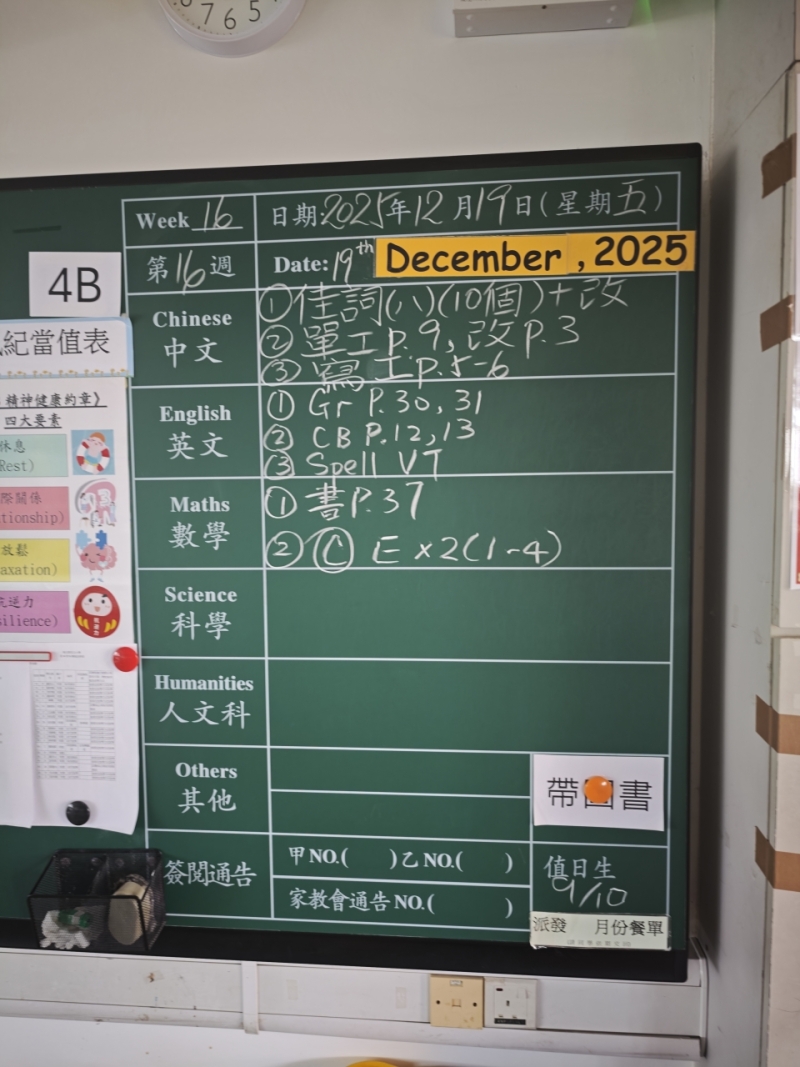 7 6 5
Week 16
日期2025年12月19日(星期五)
第16週
Date: 19th December, 2025
4B
紀當值表
精神健康約章》
四大要素
休息
Rest)
際關係
tionship)
放鬆
axation)
逆力
silience)
Chinese
中文
①佳詞(八)(10個)+改
②單工p.9,改p.3
③寫工p.5-6
English
英文
① Gr P.30, 31
② CB P.12,13
③ Spell VT
Maths
數學
① 書P.37
② Ⓒ E×2(1-4)
Science
科學
Humanities
人文科
Others
其他
帶書
簽閱通告
甲NO.( )乙NO.( )
家教會通告NO.( )
值日生
9/10
派發 月份餐單